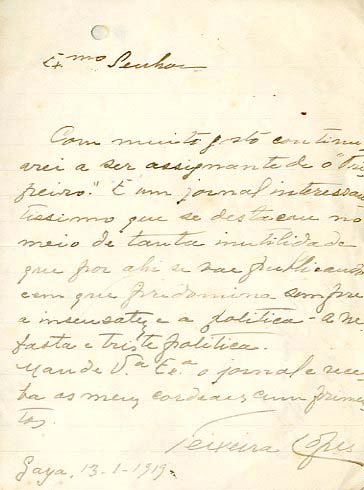 Exmo Senhor
Com muito gosto continu
arei a ser assignante de o "Tri
peiro". É um jornal interessan
tissimo que se destacou no
meio de tanta inutilidade
que por ahi se vae publicando
em que predomina sempre
a insensatez e a politica - a ne
fasta e triste politica.
Mande V.ª Ex.ª o jornal e rece
ba os meus cordeaes cumprimen
tos.
Teixeira Lopes
Gaya, 13-1-1919.